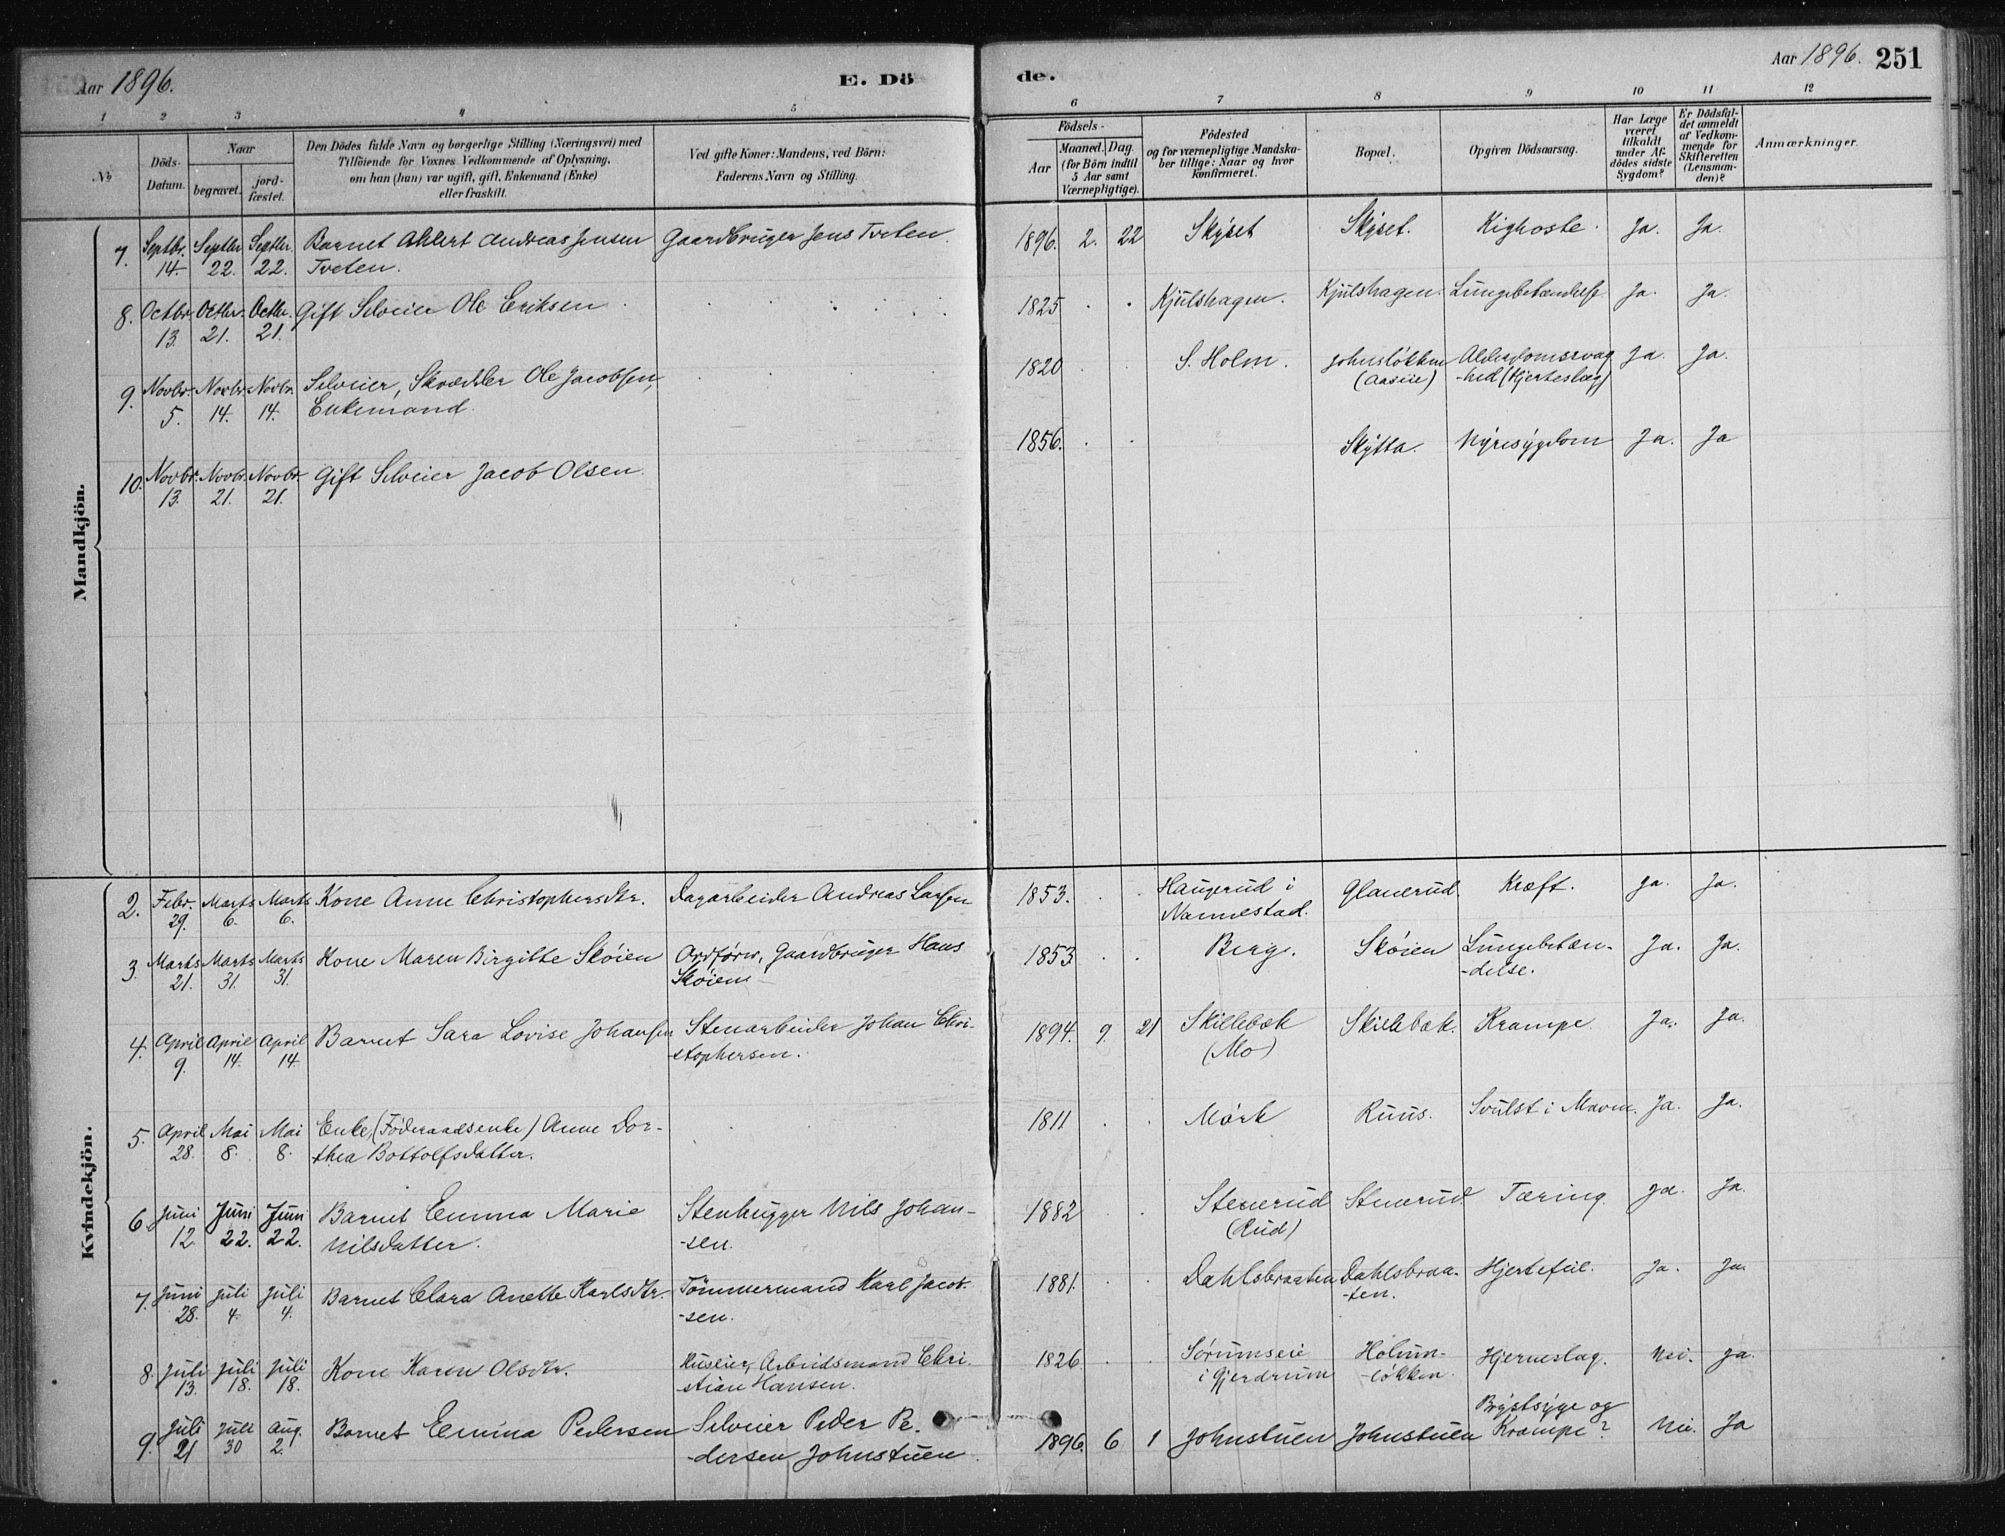 Aar 1896.
E. Dö
de.
Aar 1896.
251
1 2 3 4 5 6 7 8 9 10 11 12
No
Döds-
Datum.
Naar
begravet.
jord-
fæstet.
Den Dödes fulde Navn og borgerlige Stilling (Næringsvei) med
Tilföiende for Voxnes Vedkommende af Oplysning,
om han (hun) var ugift, gift, Enkemand (Enke)
eller fraskilt.
Ved gifte Koner: Mandens, ved Börn:
Faderens Navn og Stilling.
Födsels-
Aar
Maaned. Dag.
(for Börn indtil
5 Aar samt
Værnepligtige).
Födested
og for værnepligtige Mandska-
ber tillige: Naar og hvor
Konfirmeret.
Bopæl.
Opgiven Dödsaarsag.
Har Læge
været
tilkaldt
under Af-
dödes sidste
Sygdom?
Er Dödsfal-
det anmeldt
af Vedkom-
mende for
Skifteretten
(Lensman-
den)?
Anmærkninger.
Mandkjön.
7. Septbr. 14 Septbr 22. Septbr. 22. Barnet Ahlert Andreas Jensen Gaardbruger Jens Tveten. 1896. 2. 22 Skÿset Skÿset. Kighoste. Ja. Ja.
Tveten.
8. Octbr. 13. Octbr. 21. Octbr. 21. Gift Selveier Ole Eriksen 1825 Kjulshagen. Kjulshagen. Lungebetændelse Ja. Ja.
9. Novbr. 5. Novbr. 14. Novbr. 14. Selveier, Skrædder Ole Jacobsen, 1820 S. Holm. Johnsløkken Alderdomssvag Ja. Ja.
Enkemand. (Aaseie) -hed (Hjerteslag)
10. Novbr. 13. Novbr. 21. Novbr. 21. Gift Selveier Jacob Olsen. 1856. Skÿtta. Nÿresÿgdom Ja. Ja
Kvindekjön.
2. Febr. 29. Marts 6. Marts 6. Kone Anne Christophersdtr. Dagarbeider Andreas Larsen 1853. Haugerud i Glanerud. Kræft. Ja. Ja.
Nannestad.
3. Marts 21. Marts 31. Marts 31. Kone Maren Birgitte Skøien Ordfører, Gaardbruger Hans 1853 Berg. Skøien Lungebetæn- Ja. Ja.
Skøien -delse.
4. April 9. April 14. April 14. Barnet Sara Lovise Johansen Stenarbeider Johan Chri- 1894. 9. 21 Skillebæk Skillebæk. Krampe. Ja. Ja.
-stophersen. (Mo)
5. April 28. Mai 8. Mai 8. Enke, (Føderaadsenke) Anne Dor- 1811 Mørk Ruus. Svulst i Maven. Ja. Ja.
thea Bottolfsdatter.
6. Juni 12. Juni 22. Juni 22. Barnet Emma Marie Stenhugger Nils Johan- 1882 Stenerud Stenerud. Tæring. Ja. Ja.
Nilsdatter. -sen. (Rud)
7. Juni 28. Juli 4. Juli 4. Barnet Clara Anette Karlsdtr. Tömmermand Karl Jacob- 1881. Dahlsbraaten Dahlsbraa- Hjertefeil. Ja. Ja.
-sen. -ten.
8. Juli 13. Juli 18. Juli 18. Kone Karen Olsdtr. Huseier, Arbeidsmand Chri- 1826 Sørumseie Holum- Hjerneslag. Nei. Ja.
-stian Hansen. i Gjerdrum -løkken.
9. Juli 21 Juli 30 Aug. 2. Barnet Emma Pedersen Selveier Peder Pe- 1896. 6 1 Johnstuen Johnstuen Brÿstsÿge og Nei. Ja
-dersen Johnstuen Krampe?